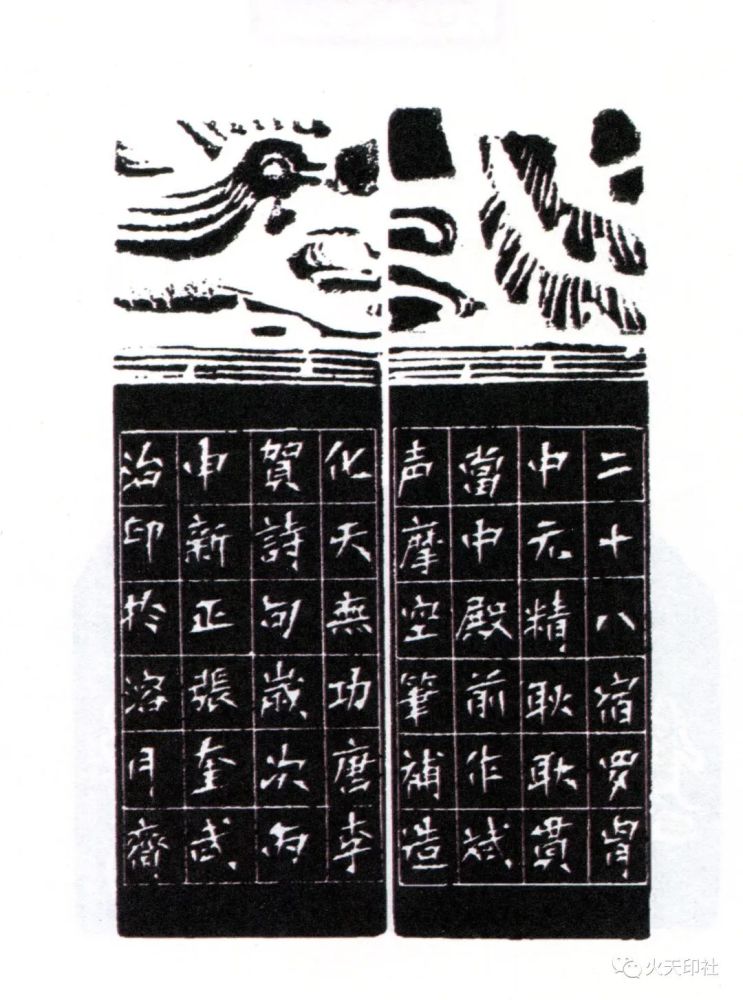 二十八宿罗胷
中元精耿耿貫
當中殿前作賦
声摩空筆補造
化天無功唐李
賀詩句歲次丙
申新正張奎武
治印於溶月齋
火天印社